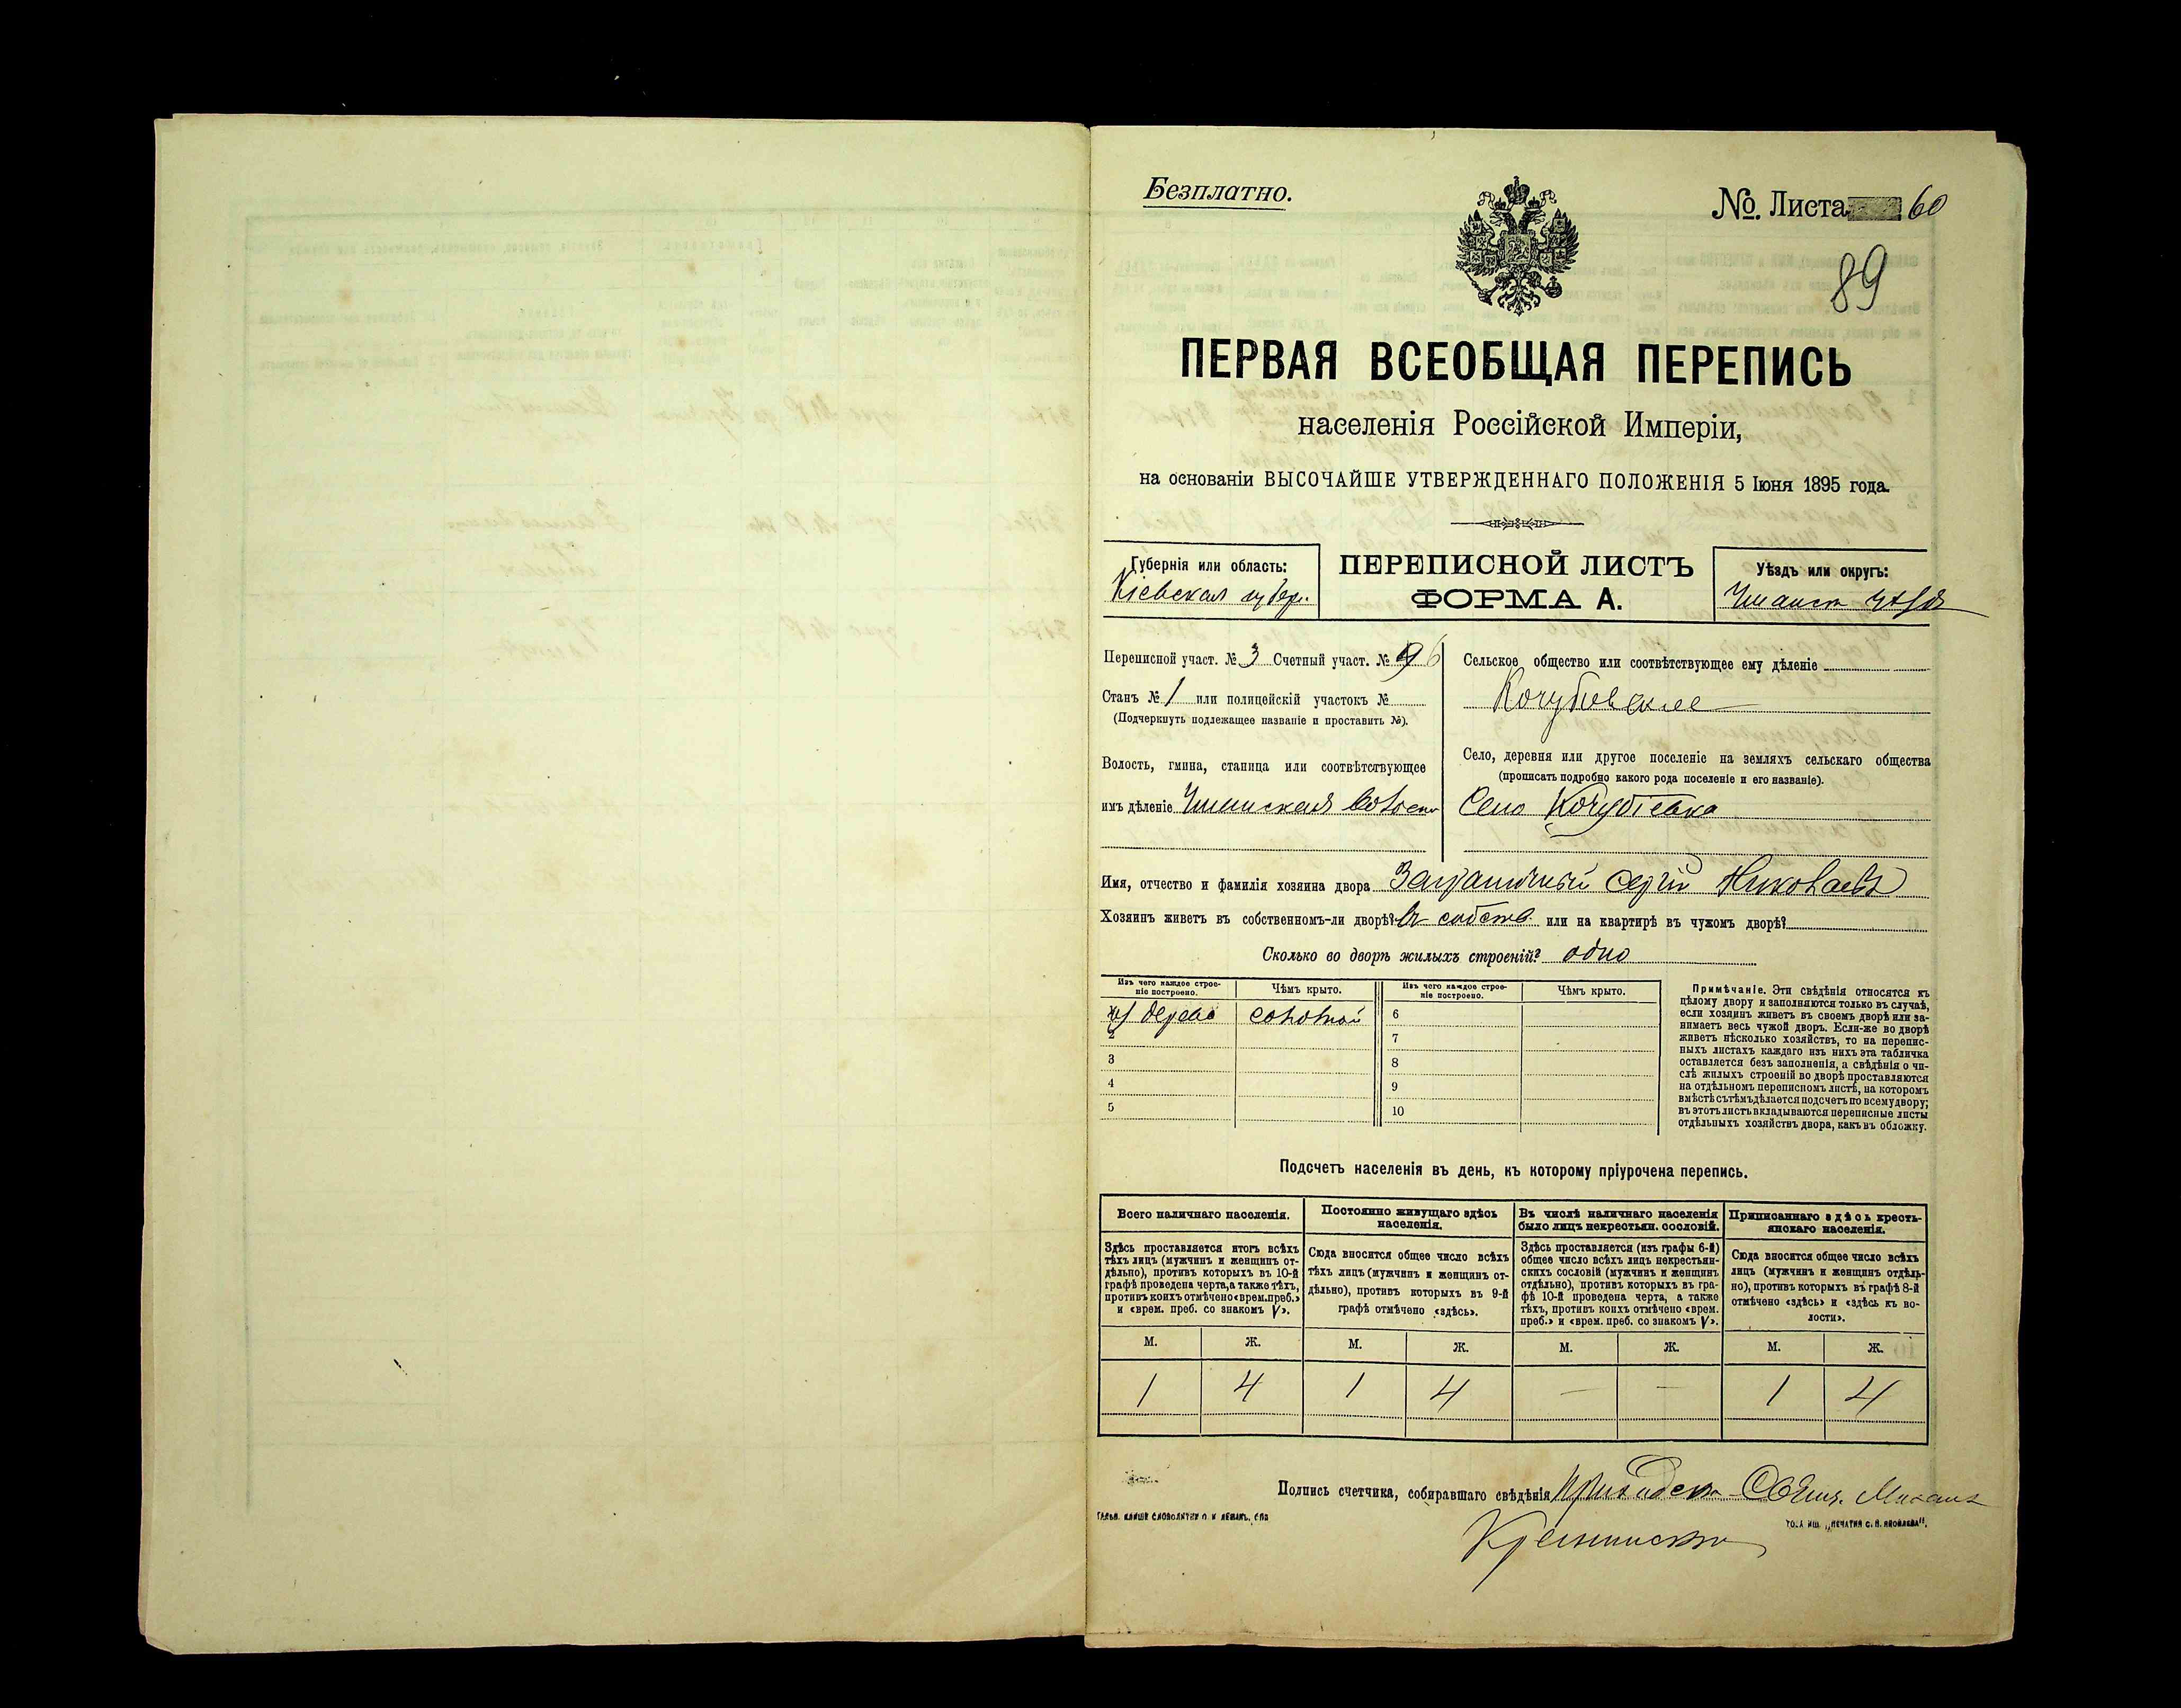 Безплатно.
№. Листа 60
89
ПЕРВАЯ ВСЕОБЩАЯ ПЕРЕПИСЬ
населенія Россійской Имперіи,
на основаніи ВЫСОЧАЙШЕ УТВЕРЖДЕННАГО ПОЛОЖЕНІЯ 5 Іюня 1895 года.
Губернія или область:
Кіевская губер.
ПЕРЕПИСНОЙ ЛИСТЪ
ФОРМА А.
Уѣздъ или округъ:
Переписной участ. № 3 Счетный участ. № 6
Станъ № 1 или полицейскій участокъ №
(Подчеркнуть подлежащее названіе и проставить №).
Волость, гмина, станица или соотвѣтствующее
имъ дѣленіе
Сельское общество или соотвѣтствующее ему дѣленіе
Село, деревня или другое поселеніе на земляхъ сельскаго общества
(прописать подробно какого рода поселеніе и его названіе).
Село Кочубіевка
Имя, отчество и фамилія хозяина двора Заграничный Сергій Николаевъ
Хозяинъ живетъ въ собственномъ-ли дворѣ? въ собств. или на квартирѣ въ чужомъ дворѣ?
Сколько во дворѣ жилыхъ строеній? одно
Изъ чего каждое строе-
ніе построено.
Чѣмъ крыто.
Изъ чего каждое строе-
ніе построено.
Чѣмъ крыто.
изъ дерева соломой
2
3
4
5
6
7
8
9
10
Примѣчаніе. Эти свѣдѣнія относятся къ
цѣлому двору и заполняются только въ случаѣ,
если хозяинъ живетъ въ своемъ дворѣ или за-
нимаетъ весь чужой дворъ. Если-же во дворѣ
живетъ нѣсколько хозяйствъ, то на перепис-
ныхъ листахъ каждаго изъ нихъ эта табличка
оставляется безъ заполненія, а свѣдѣнія о чи-
слѣ жилыхъ строеній во дворѣ проставляются
на отдѣльномъ переписномъ листѣ, на которомъ
вмѣстѣ съ тѣмъ дѣлается подсчетъ по всему двору;
въ этотъ листъ вкладываются переписные листы
отдѣльныхъ хозяйствъ двора, какъ въ обложку.
Подсчетъ населенія въ день, къ которому пріурочена перепись.
Всего наличнаго населенія.
Здѣсь проставляется итогъ всѣхъ
тѣхъ лицъ (мужчинъ и женщинъ от-
дѣльно), противъ которыхъ въ 10-й
графѣ проведена черта, а также тѣхъ,
противъ коихъ отмѣчено «врем. преб.»
и «врем. преб. со знакомъ V».
Постоянно живущаго здѣсь
населенія.
Сюда вносится общее число всѣхъ
тѣхъ лицъ (мужчинъ и женщинъ от-
дѣльно), противъ которыхъ въ 9-й
графѣ отмѣчено «здѣсь».
Въ числѣ наличнаго населенія
было лицъ некрестьян. сословій.
Здѣсь проставляется (изъ графы 6-й)
общее число всѣхъ лицъ некрестьян-
скихъ сословій (мужчинъ и женщинъ
отдѣльно), противъ которыхъ въ гра-
фѣ 10-й проведена черта, а также
тѣхъ, противъ коихъ отмѣчено «врем.
преб.» и «врем. преб. со знакомъ V».
Приписаннаго здѣсь кресть-
янскаго населенія.
Сюда вносится общее число всѣхъ
лицъ (мужчинъ и женщинъ отдѣль-
но), противъ которыхъ въ графѣ 8-й
отмѣчено «здѣсь» и «здѣсь къ во-
лости».
М. Ж. М. Ж. М. Ж. М. Ж.
1 4 1 4 — — 1 4
Подпись счетчика, собиравшаго свѣдѣнія